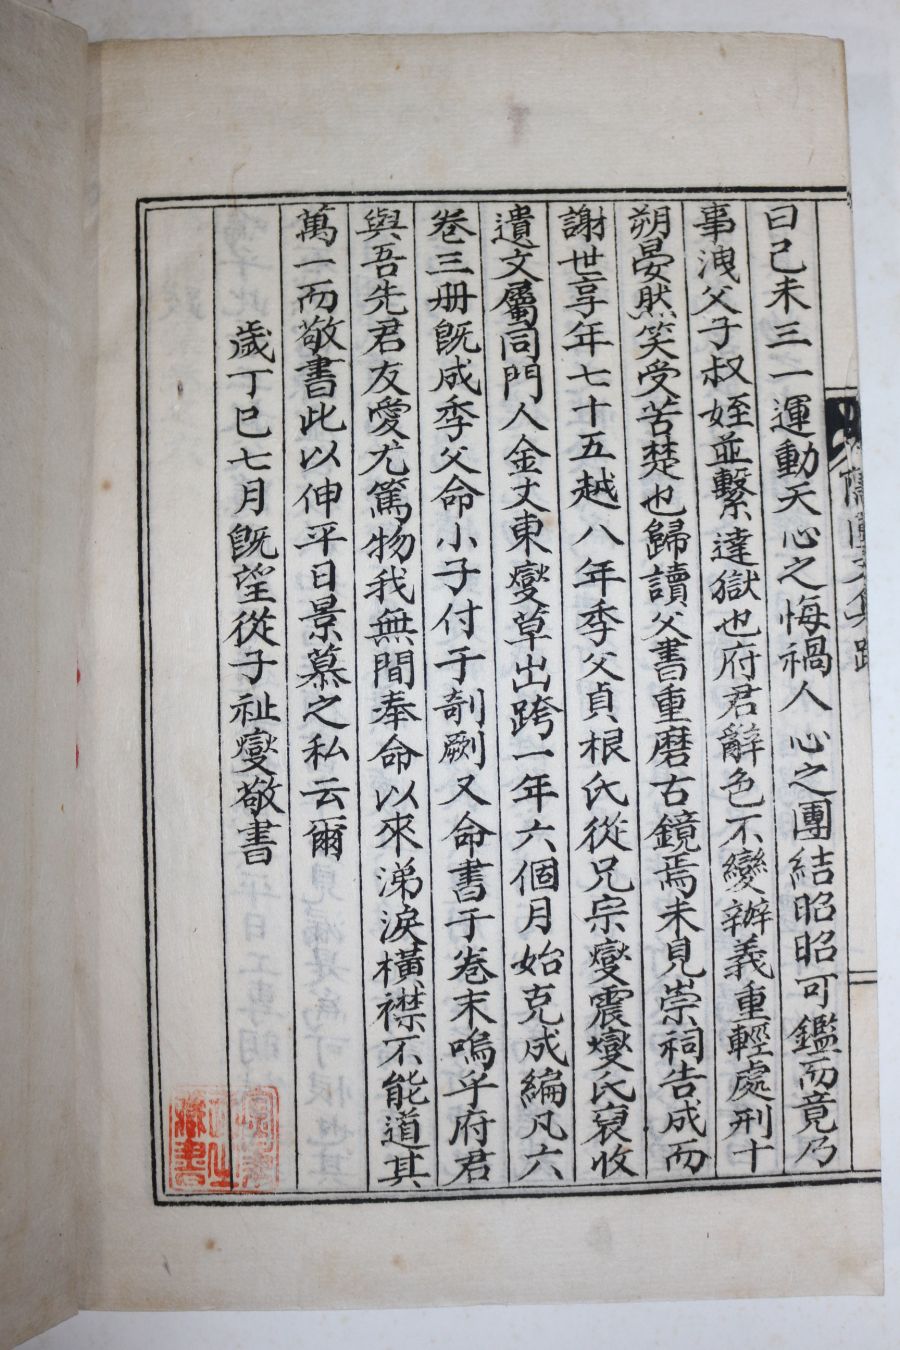 曰己未三一運動天心之悔禍人心之團結昭昭可鑑而竟乃
事洩父子叔姪並繫達獄也府君辭色不變辦義重輕處刑十
朔晏然笑受苦楚也歸讀父書重磨古鏡焉未見崇祠告成而
謝世享年七十五越八年季父貞根氏從兄宗燮震燮氏裒收
遺文屬同門人金丈東燮草出跨一年六個月始克成編凡六
卷三册旣成季父命小子付于剞劂又命書于卷末嗚乎府君
與吾先君友愛尤篤物我無間奉命以來涕淚橫襟不能道其
萬一而敬書此以伸平日景慕之私云爾
歲丁巳七月旣望從子祉燮敬書